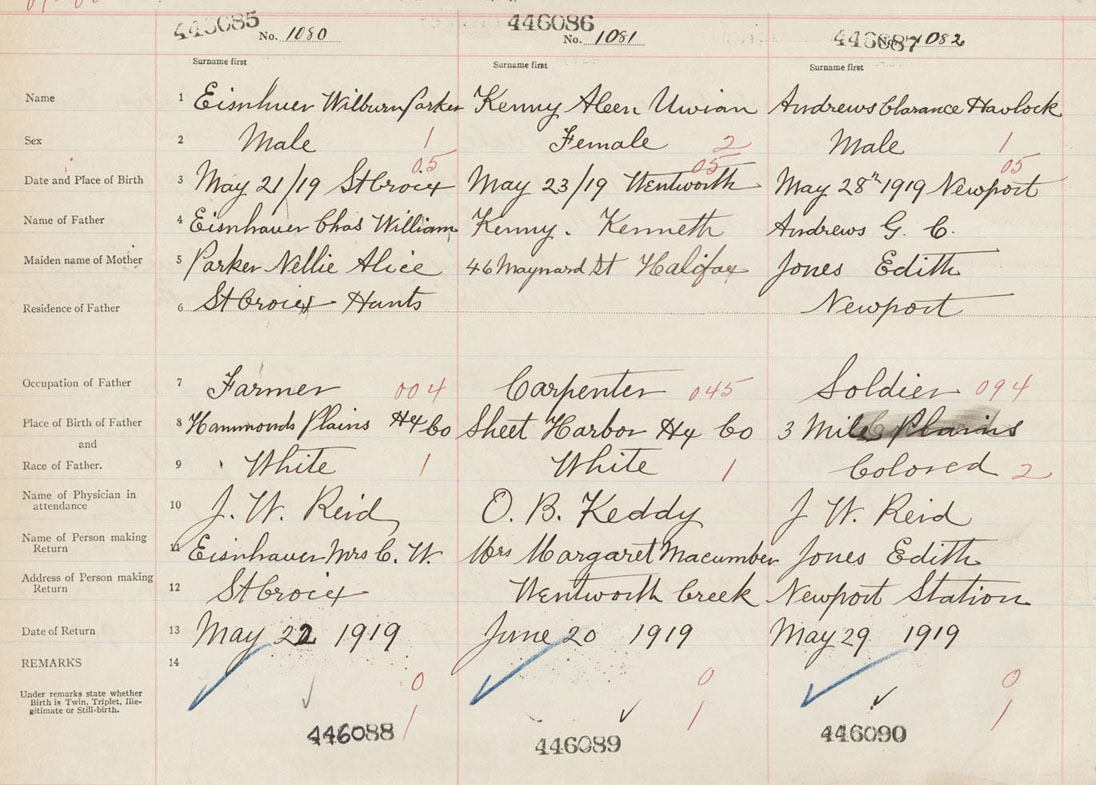 446085 446086 446087
No. 1080 No. 1081 No. 1082
Surname first Surname first Surname first
Name 1 Eisnhuer Wilburn Parker Kenny Aleen Uivian Andrews Clarance Havlock
Sex 2 Male 1 Female 2 Male 1
05 05 05
Date and Place of Birth 3 May 21/19 St Croix May 23/19 Wentworth May 28th 1919 Newport
Name of Father 4 Eisnhauer Chas William Kenny. Kenneth Andrews G. C.
Maiden name of Mother 5 Parker Nellie Alice 46 Maynard St Halifax Jones Edith
Residence of Father 6 St Croix Hants Newport
Occupation of Father 7 Farmer 004 Carpenter 045 Soldier 094
Place of Birth of Father 8 Hammonds Plains Hx Co Sheet Harbor Hx Co 3 Mile Plains
and
Race of Father. 9 White 1 White 1 Colored 2
Name of Physician in
attendance 10 J. W. Reid O. B. Keddy J W. Reid
Name of Person making
Return 11 Eisnhauer Mrs C. W. Mrs Margaret Macumber Jones Edith
Address of Person making
Return 12 St Croix Wentworth Creek Newport Station
Date of Return 13 May 22 1919 June 20 1919 May 29 1919
REMARKS 14
0 0 0
Under remarks state whether
Birth is Twin, Triplet, Ille-
gitimate or Still-birth.
1 1 1
446088 446089 446090